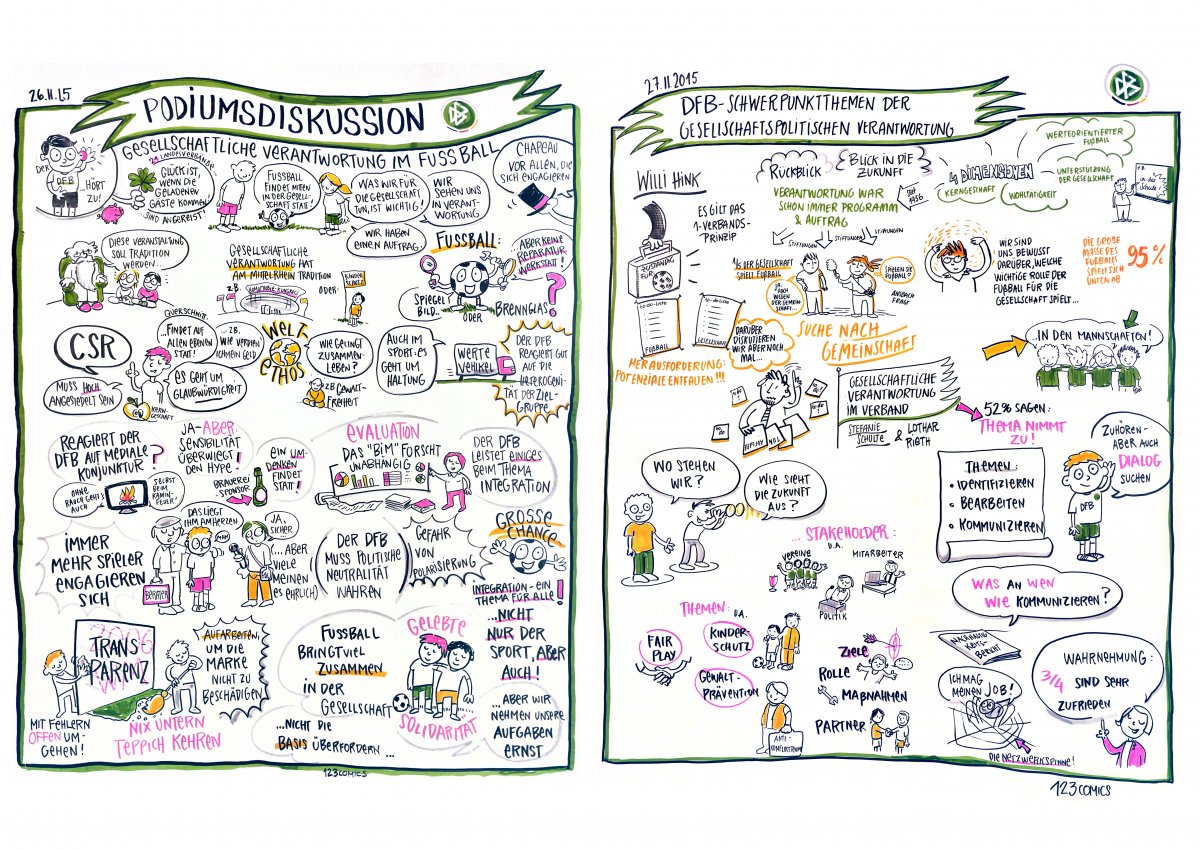 26.11.15
PODIUMSDISKUSSION
DFB
GESELLSCHAFTLICHE VERANTWORTUNG IM FUSSBALL
DER
DFB
HÖRT
ZU!
21 LANDESVERBÄNDE
GLÜCK IST,
WENN DIE
GELADENEN
GÄSTE KOMMEN
SIND ANGEREIST!
FUSSBALL
FINDET MITTEN
IN DER GESELL-
SCHAFT STATT!
WAS WIR FÜR
DIE GESELLSCHAFT
TUN, IST WICHTIG!
WIR HABEN
EINEN AUFTRAG
WIR
SEHEN UNS
IN VERANT-
WORTUNG
CHAPEAU
VOR ALLEN, DIE
SICH ENGAGIEREN
DIESE VERANSTALTUNG
SOLL TRADITION
WERDEN...
GESELLSCHAFTLICHE
VERANTWORTUNG HAT
AM MITTELRHEIN TRADITION
Z.B.
ODER:
KINDER
SCHUTZ
FUSSBALL:
SPIEGEL
BILD...
ODER
BRENNGLAS?
ABER KEINE
REPARATUR-
WERKSTATT!
CSR
MUSS HOCH
ANGESIEDELT SEIN
QUERSCHNITT:
...FINDET AUF
ALLEN EBENEN
STATT!
ES GEHT UM
GLAUBWÜRDIGKEIT
KERN-
GESCHÄFT
...ZB.
WIE VERDIEN
ICH MEIN GELD
WELT-
ETHOS
WIE GELINGT
ZUSAMMEN-
LEBEN?
ZB GEWALT-
FREIHEIT
AUCH IM
SPORT: ES
GEHT UM
HALTUNG
WERTE
VEHIKEL
DER DFB
REAGIERT GUT
AUF DIE
HETEROGENI-
TÄT DER ZIEL-
GRUPPE
REAGIERT DER
DFB AUF MEDIALE
KONJUNKTUR?
OHNE
RAUCH GEHT'S
AUCH
SELBST
BEIM
KAMIN-
FEUER!
JA-ABER:
SENSIBILITÄT
ÜBERWIEGT
DEN HYPE!
BRAUEREI-
SPONSOR
EIN UM-
DENKEN
FINDET
STATT!
EVALUATION
DAS "BIM" FORSCHT
UNABHÄNGIG
DER DFB
LEISTET EINIGES
BEIM THEMA
INTEGRATION
IMMER
MEHR SPIELER
ENGAGIEREN
SICH
BERATER
DAS LIEGT
IHM AM HERZEN
JA,
SICHER
...ABER
VIELE
MEINEN
ES EHRLICH)
(DER DFB
MUSS POLITISCHE
NEUTRALITÄT
WAHREN)
GEFAHR
VON
POLARISIERUNG
GROSSE
CHANCE
INTEGRATION - EIN
THEMA FÜR ALLE!
TRANS
PARENZ
2006
MIT FEHLERN
OFFEN UM-
GEHEN!
NIX UNTERN
TEPPICH KEHREN
AUFARBEITEN,
UM DIE
MARKE
NICHT ZU
BESCHÄDIGEN
FUSSBALL
BRINGT VIEL
ZUSAMMEN
IN DER
GESELLSCHAFT
...NICHT DIE
BASIS ÜBERFORDERN...
GELEBTE
SOLIDARITÄT
...NICHT
NUR DER
SPORT, ABER
AUCH!
...ABER WIR
NEHMEN UNSERE
AUFGABEN
ERNST
123COMICS
27.11.2015
DFB-SCHWERPUNKTTHEMEN DER
GESELLSCHAFTSPOLITISCHEN VERANTWORTUNG
DFB
WILLI HINK
ES GILT DAS
1-VERBANDS-
PRINZIP
ZUSTÄNDIG
FÜR
TO-DO-LISTE
FUSSBALL
TO-DO-LISTE
GESELLSCHAFT
HERAUSFORDERUNG:
POTENZIALE ENTFALTEN!!!
RÜCKBLICK
BLICK IN DIE
ZUKUNFT
VERANTWORTUNG WAR
SCHON IMMER PROGRAMM
& AUFTRAG
SEIT
1956
STIFTUNGEN
STIFTUNGEN
STIFTUNGEN
4 DIMENSIONEN
KERNGESCHÄFT
WOHLTÄTIGKEIT
WERTEORIENTIERTER
FUSSBALL
UNTERSTÜTZUNG
DER GESELLSCHAFT
Z.B.
in der
Schule!
1/6 DER GESELLSCHAFT
SPIELT FUSSBALL
JA,
AUCH
WEGEN
DER GEMEIN-
SCHAFT...
SPIELEN SIE
FUSSBALL?
DARÜBER
DISKUTIEREN
WIR ABER NOCH
MAL...
SUCHE NACH
GEMEINSCHAFT
WIR SIND
UNS BEWUSST
DARÜBER, WELCHE
WICHTIGE ROLLE DER
FUSSBALL FÜR DIE
GESELLSCHAFT SPIELT...
DIE GROßE
MASSE DES
FUßBALLS
SPIELT SICH
UNTEN AB
95%
IN DEN MANNSCHAFTEN!
GESELLSCHAFTLICHE
VERANTWORTUNG
IM VERBAND
STEFANIE
SCHULTE
& LOTHAR
RIETH
52% SAGEN:
THEMA NIMMT
ZU!
WO STEHEN
WIR?
WIE SIEHT
DIE ZUKUNFT
AUS?
THEMEN:
• IDENTIFIZIEREN
• BEARBEITEN
• KOMMUNIZIEREN
ZUHÖREN-
ABER AUCH
DIALOG
SUCHEN
DFB
...STAKEHOLDER:
U.A.
VEREINE
MITARBEITER
POLITIK
WAS AN WEN
WIE KOMMUNIZIEREN?
THEMEN: U.A.
FAIR
PLAY
KINDER-
SCHUTZ
GEWALT-
PRÄVENTION
ANTI-
ZIELE
ROLLE
MAßNAHMEN
PARTNER
NACHHALTIG-
KEITS-
BERICHT
ICH MAG
MEINEN JOB!
DIE NETZWERKSPINNE!
WAHRNEHMUNG:
3/4 SIND SEHR
ZUFRIEDEN
123COMICS